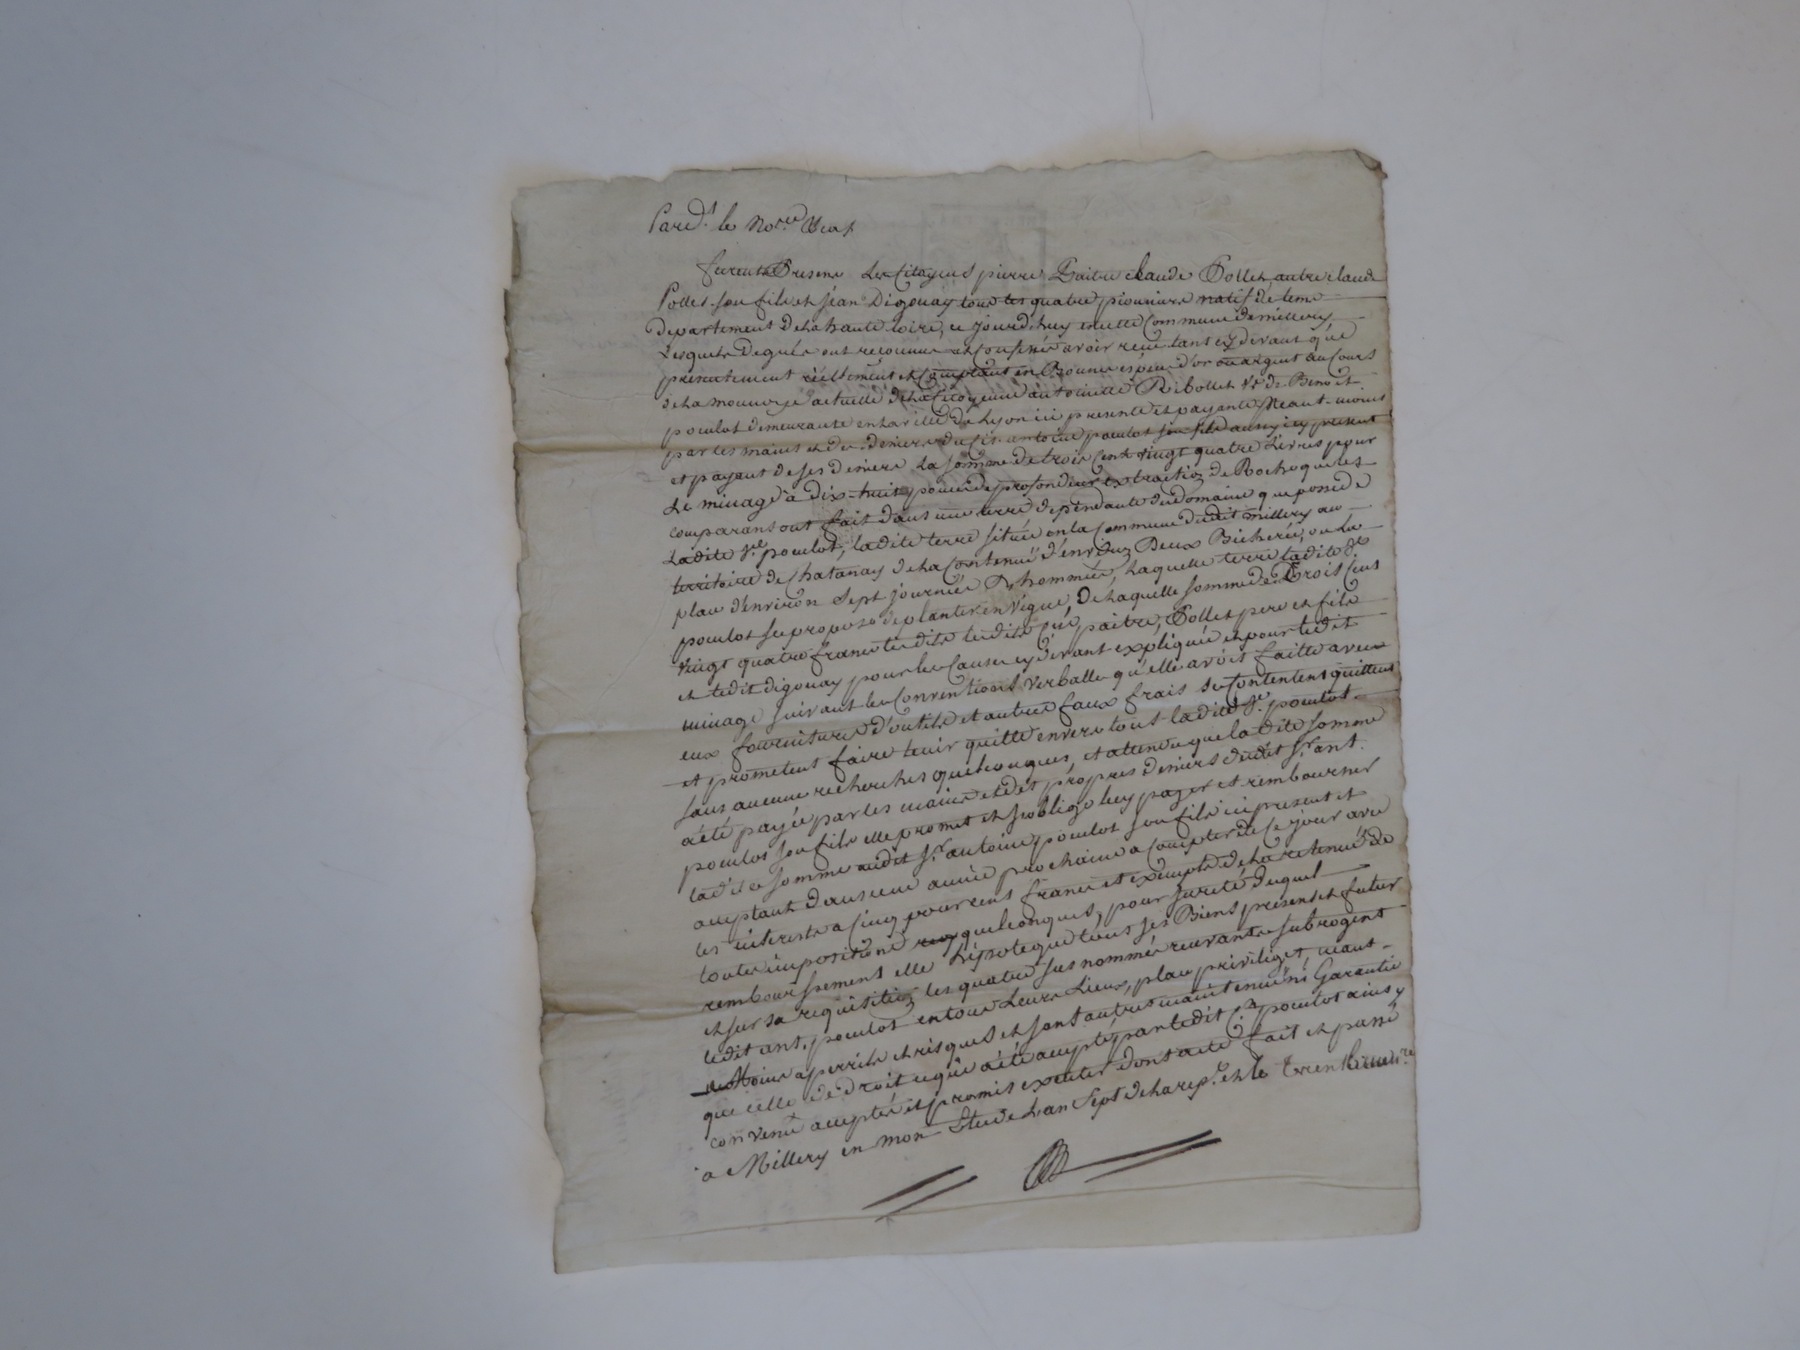 Pard.t le No.re
furent Presens Les Citoyens pierre Paitre claude Pollet, autre claude
Pollet son fils et jean Digonay tous les quatre pionniers natif de
departement de la haute loire, ce jourd'huy en cette Commune de millery
Lesquels de grés ont reconnus et Confessé avoir reçu tant cy devant que
présentement réellement et Comptant en Bonnes espèces d'or ou argent au Cours
de la monnoye actuelle de la Citoyenne antoinette Ribollet v.e de Benoit
poculot demeurante en la ville de Lyon ici presente et payante Neant-moins
par les mains et des deniers du Cit. antoine poculot son fils aussy icy present
et payant de ses deniers La somme de trois Cent vingt quatre Livres pour
Le minage à dix-huit pouces de profondeur extraction de Roche que les
comparans ont fait dans une terre dépendante du domaine que possède
Ladite v.e poculot, ladite terre située en la Commune dudit millery au
territoire de Chatanay de la Contenue d'environ Deux Bicherées, ou la
place d'environ Sept journées D'hommes, Laquelle terre ladite v.e
poculot se propose de planter en vigne, De laquelle somme de Trois Cens
vingt quatre francs lesdits paitre, Pollet pere et fils
et ledit digonay pour les Causes cy devant expliquée et pour ledit
minage suivant les Conventions verballe qu'elle avoit faitte avec
eux fourniture d'outils et autres faux frais se Contentent quittent
et promettent faire tenir quitte envers tous ladite v.e poculot
sans aucune recherches quelconques, et attendu que ladite somme
a été payée par les mains et des propres deniers dudit S.r ant.
poculot son fils elle promet et s'oblige luy payer et rembourser
ladite somme audit S.r antoine poculot son fils ici present et
acceptant dans une année prochaine a Compter de Ce jour avec
les interests a Cinq pour cens franc et exempts de la retenue de
toutes impositions quelconques, pour sureté duquel
remboursement elle hÿpoteque tous ses Biens présens et futur
et sur sa requisition les quatre sus nommés recevants subrogent
ledit ant. poculot en tous Leurs Lieux, place privilèges,
a perrils et risques et sans autres maintenue ni Garantie
que celle de Droit ce qui a été accepté par ledit C.n poculot ainsy
convenu accepté et promis executer dont acte fait et passé
a Millery en mon Etude L'an Sept de la rep.e et le